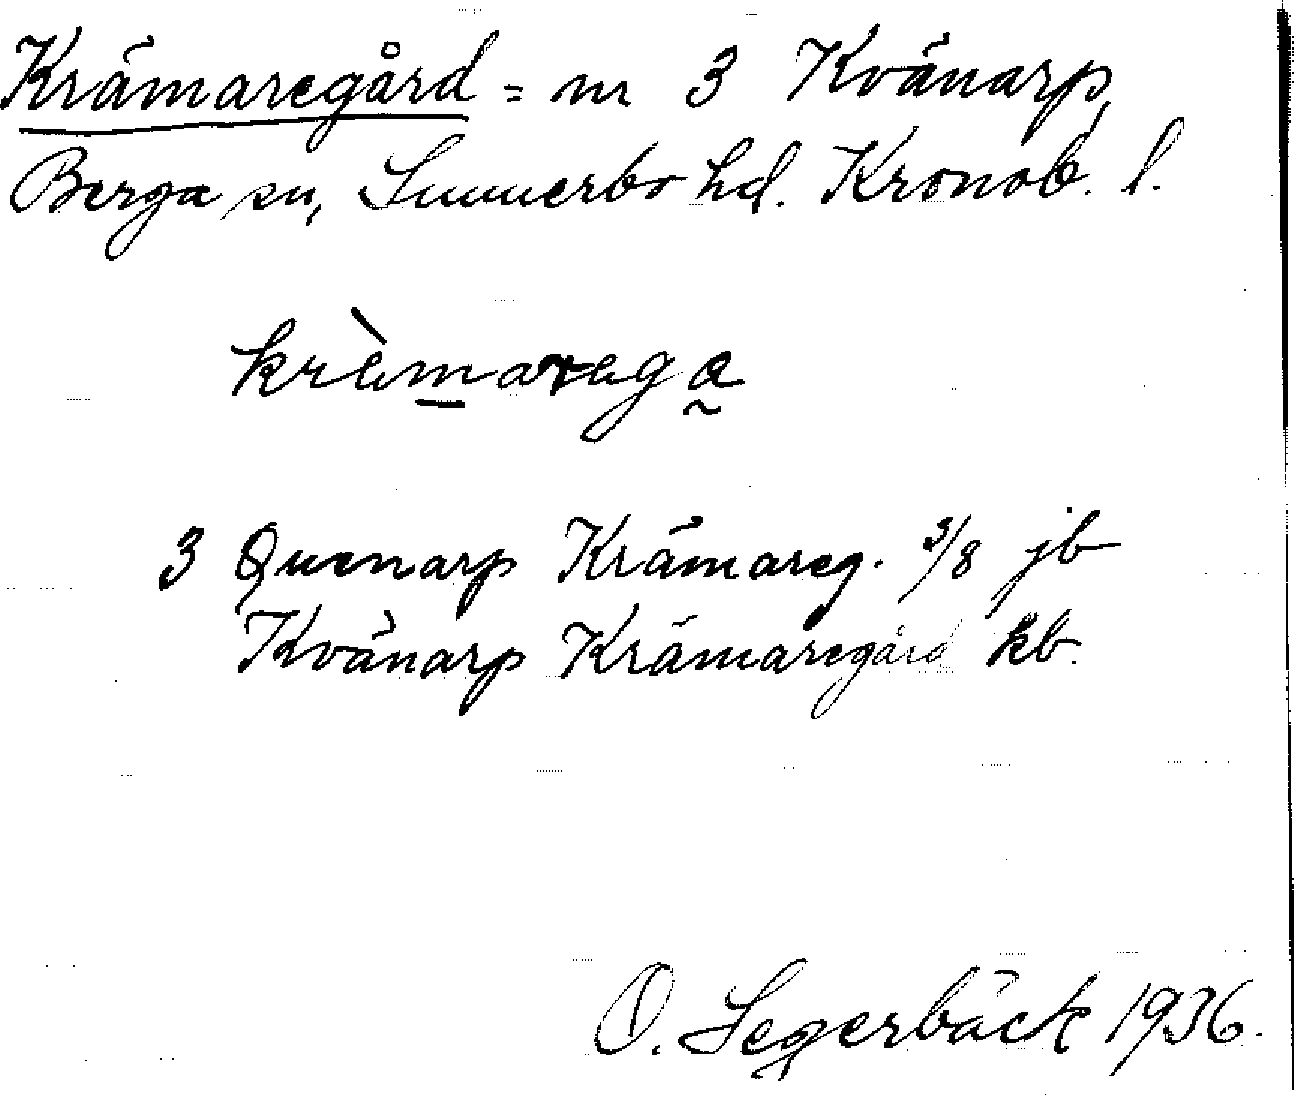 Krämaregård = nr 3 Kvänarp,
Berga sn, Sunnerbo hd. Kronob. l.
kràmaraga
3 Quenarp Krämareg. 3/8 jb
Kvänarp Krämaregård kb.
O. Segerbäck 1936.